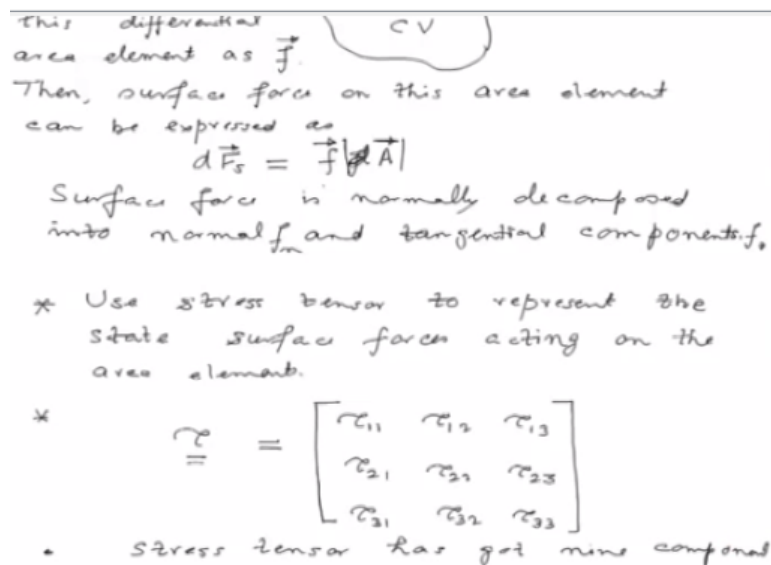 this differential CV
area element as f⃗.
Then, surface force on this area element
can be expressed as
dF⃗s = f⃗ |dA⃗|
Surface force is normally decomposed
into normal fn and tangential components.
* Use stress tensor to represent the
state surface forces acting on the
area element.
* τ = [ τ11 τ12 τ13
τ21 τ22 τ23
τ31 τ32 τ33 ]
• stress tensor has got nine componen